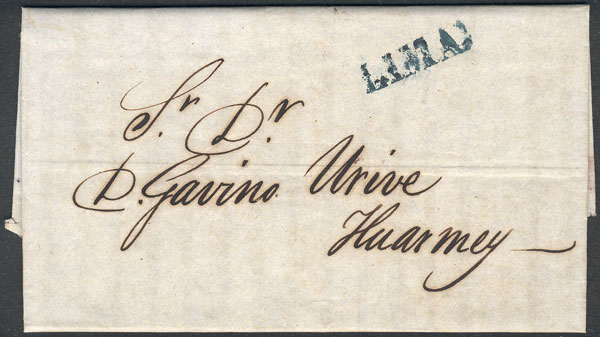 LIMA
Sr. Dr.
D. Gavino Urive
Huarmey